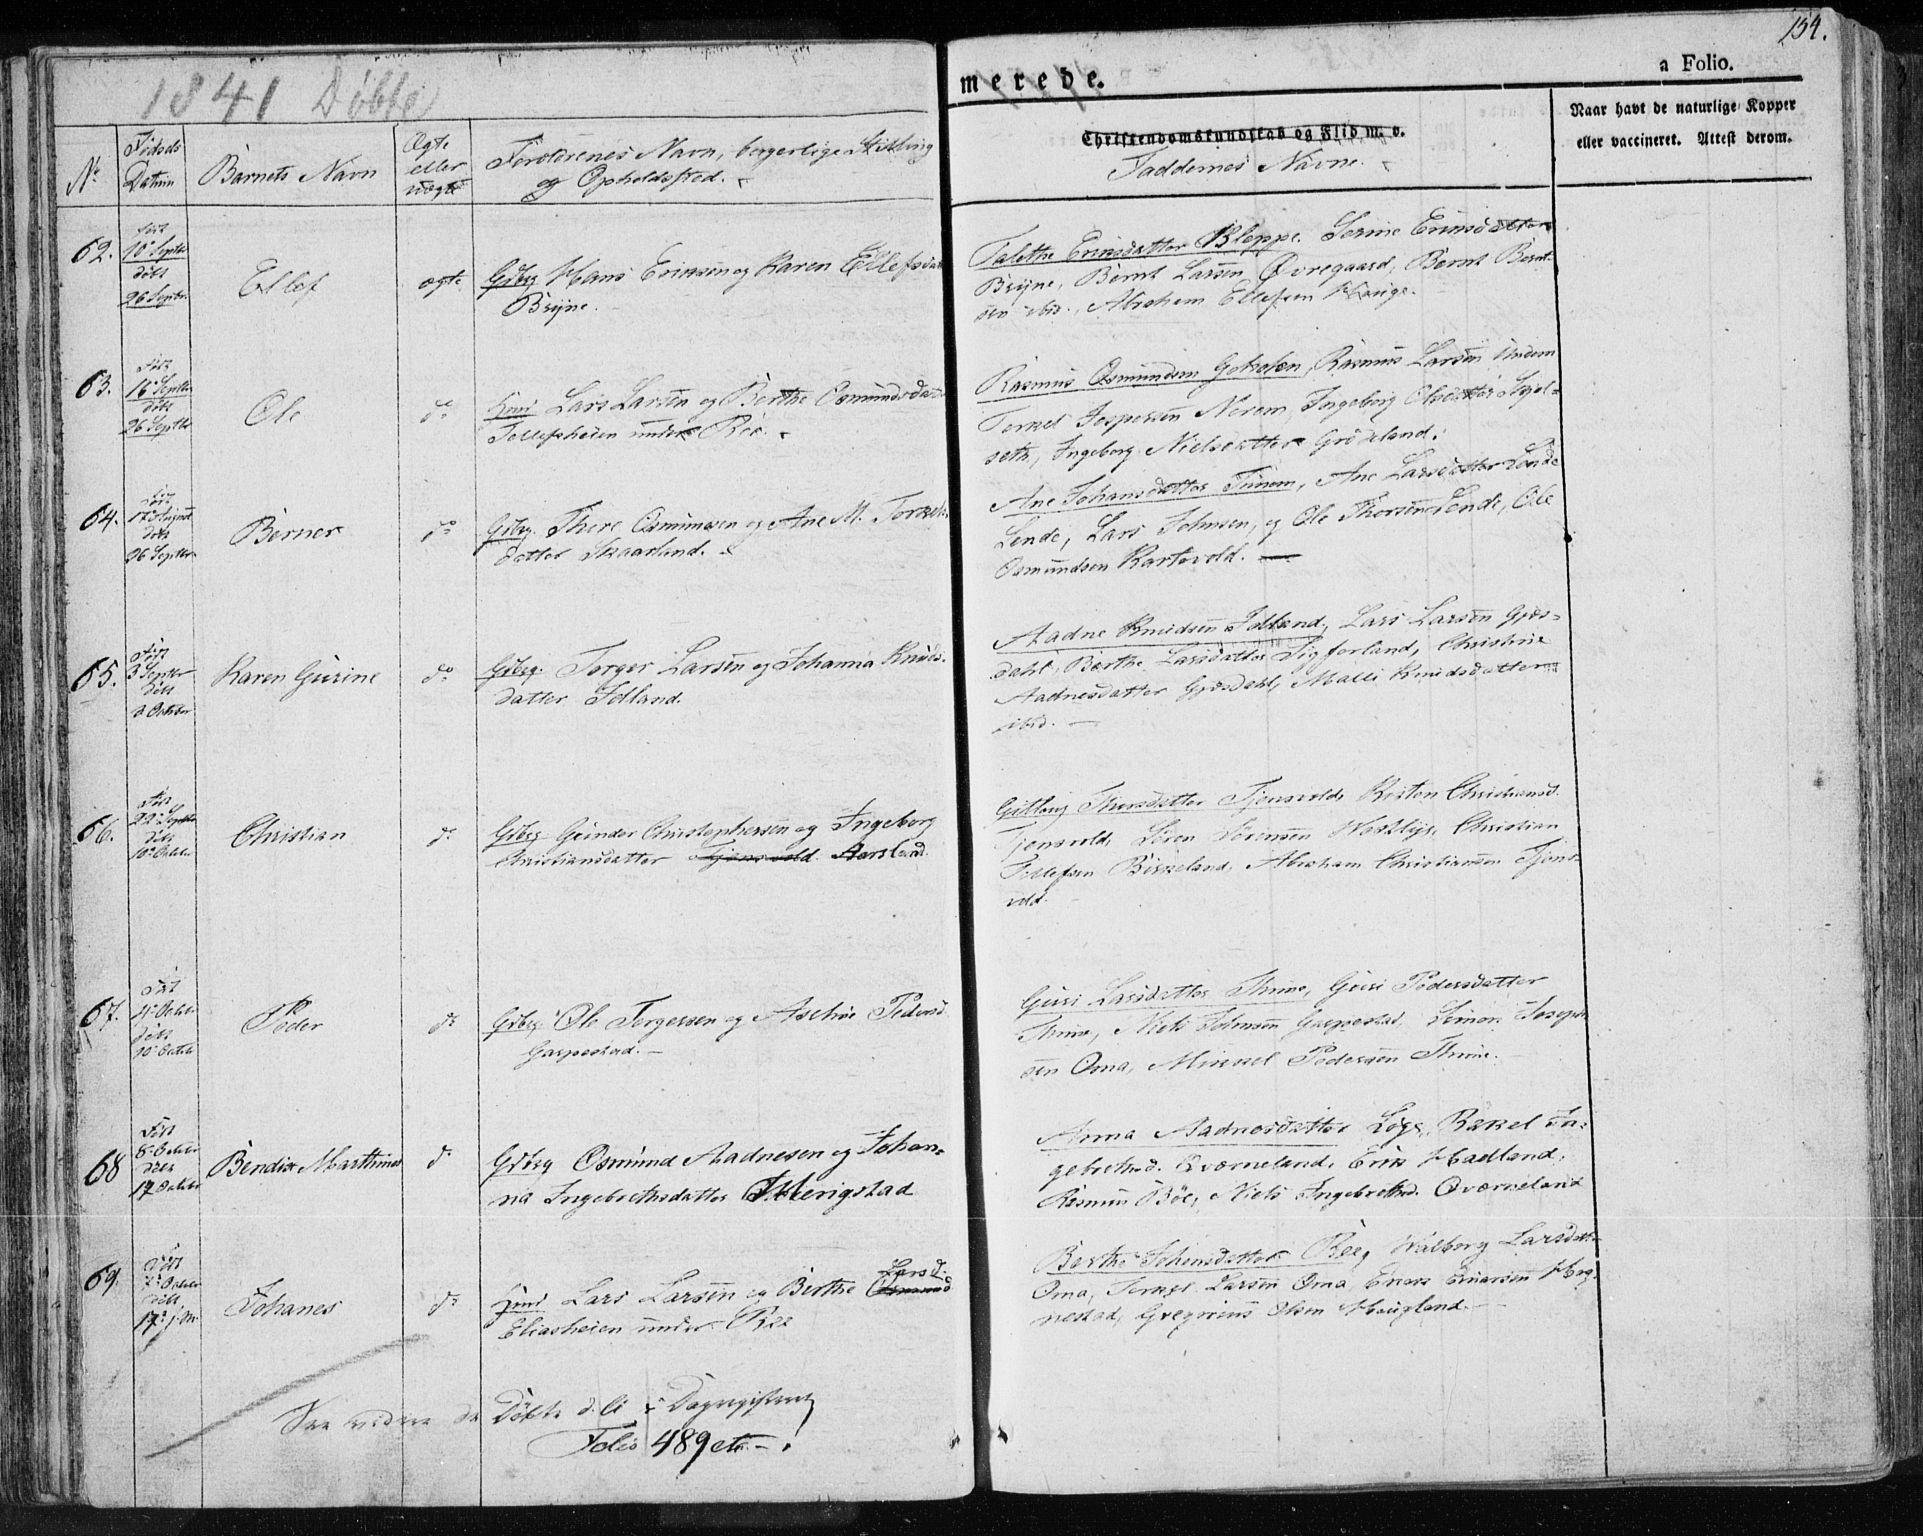 154.
1841 Døbte
merede.
a Folio.
No
Fødsels Datum
Barnets Navn
Ægte eller uægte
Forældrenes Navn, borgerlige Stilling
og Opholdssted.
Christendomskundskab og Flid m. v.
Faddernes Navne.
Naar havt de naturlige Kopper
eller vaccineret. Attest derom.
62.
født
10 Septbr
døbt
26 Septbr.
Ellef
ægte
Gdbrg Hans Eriksen og Karen Ellefsdat
Bryne.
Talette Eriksdatter Kleppe, Serine Eriksdatter
Bryne, Bernt Larsen Øvregaard, Bernt Bernt-
sen ibid., Abraham Ellefsen Hauge.
63.
Født
16 Septbr
døbt
26 Septbr
Ole
do
Huusm Lars Larsen og Berthe Osmundsdat
Tollefsheien under Ree.
Rasmus Osmundsen Rasmus Larsen
Torkel Jespersen Norem, Ingeborg Olsdatter Skjel-
seth, Ingeborg Nielsdatter
64.
Født
August
døbt
26 Septbr
Berner
do
Gdbrg. Thore Osmundsen og Ane M. Torkels
datter Skaarland.
Ane Johansdatter Tunem, Ane Larsdatter Lende
Lende, Lars Johnsen, og Ole Thorsen Lende, Ole
Osmundsen Kartevold.
65.
Født
3 Septbr
døbt
October
Karen Gurine
do
Gdbrg. Torger Larsen og Johanna Knuds-
datter Jelland.
Aadne Knudsen Jelland, Lars Larsen Gjes-
dahl, Berthe Larsdatter Sigforland, Christine
Aadnesdatter Gjesdahl, Malli Knudsdatter
ibid.
66.
Født
22 Septbr
døbt
10 Octobr
Christian
do
Gdbrg Gunder Christophersen og Ingeborg
Christiansdatter Tjensvold Aarsland.
Guttorg Thorsdatter Tjensvold, Kirsten Christiansd.
Tjensvold, Søren Sørensen Christian
Tollefsen Birkeland, Abraham Christiansen Tjens
vold.
67.
Født
4 Octobr
døbt
10 Octobr
Peder
do
Gdbrg. Ole Torgersen og Aschie Pedersd
Garpestad.
Guri Larsdatter Thime, Guri Pedersdatter
Thime, Niels Johnsen Garpestad, Simon Joseph
sen Oma, Mikael Pedersen Thime.
68
Født
8 Octobr
døbt
17 Octobr
Bendix Marthinus
do
Gdbrg Osmund Aadnesen og Johan-
na Ingebrethsdatter
Anna Aadnesdatter Løge, Rakel In-
gebrethsd. Qværneland, Erik Hadland,
Rasmus Bøe, Niels Ingebrethsd. Qværneland
69.
Født
7 Octobr
døbt
17
Johanes
do
Huusm Lars Larsen og Berthe Osmund Larsd.
Eliasheien under Ree
Berthe Johnsdatter Ree, Walborg Larsdatt
Oma, Torkel Larsen Oma, Enok Enarsen Hog-
nestad, Gregorius Olsen Haugland.
See videre de Døbte d. li i Dagregisteret
Folio 489 etc.